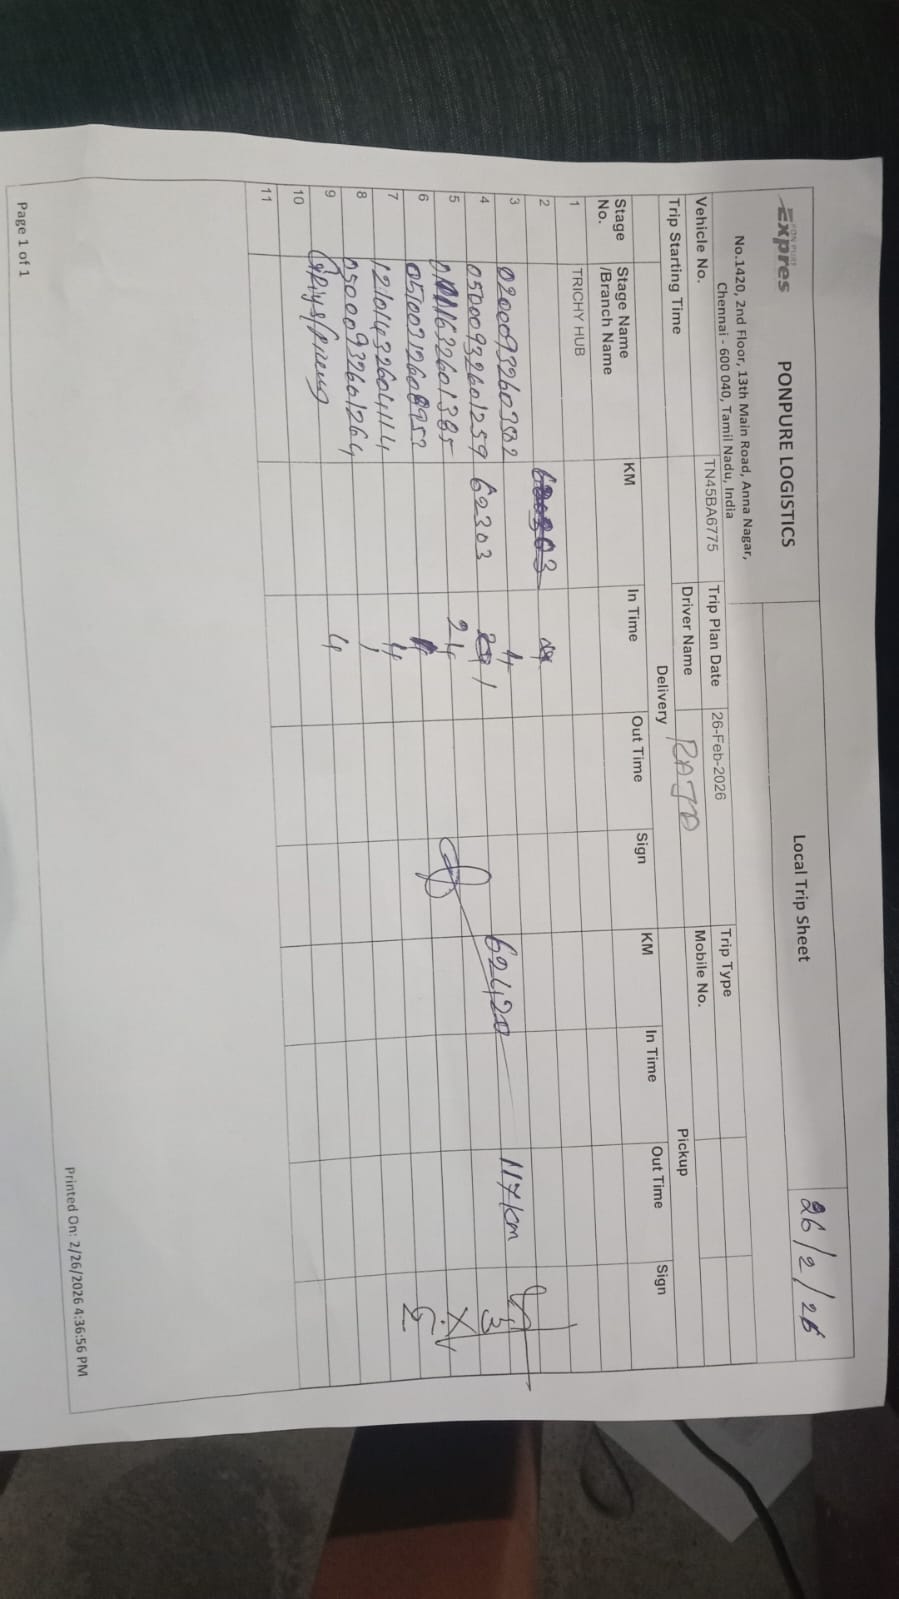 PON PURE
Expres
PONPURE LOGISTICS
Local Trip Sheet
26/2/26
No.1420, 2nd Floor, 13th Main Road, Anna Nagar,
Chennai - 600 040, Tamil Nadu, India
Vehicle No. TN45BA6775 Trip Plan Date 26-Feb-2026 Trip Type
Trip Starting Time Driver Name RAJA Mobile No.
Delivery Pickup
Stage No. Stage Name /Branch Name KM In Time Out Time Sign KM In Time Out Time Sign
1 TRICHY HUB
2
3 0200093260382 4 62420 117 km
4 05000932601259 62303 1
5 1632601385 24
6
7 12101432604114 4
8 05000932601264 1
9 4
10
11
Page 1 of 1
Printed On: 2/26/2026 4:36:56 PM